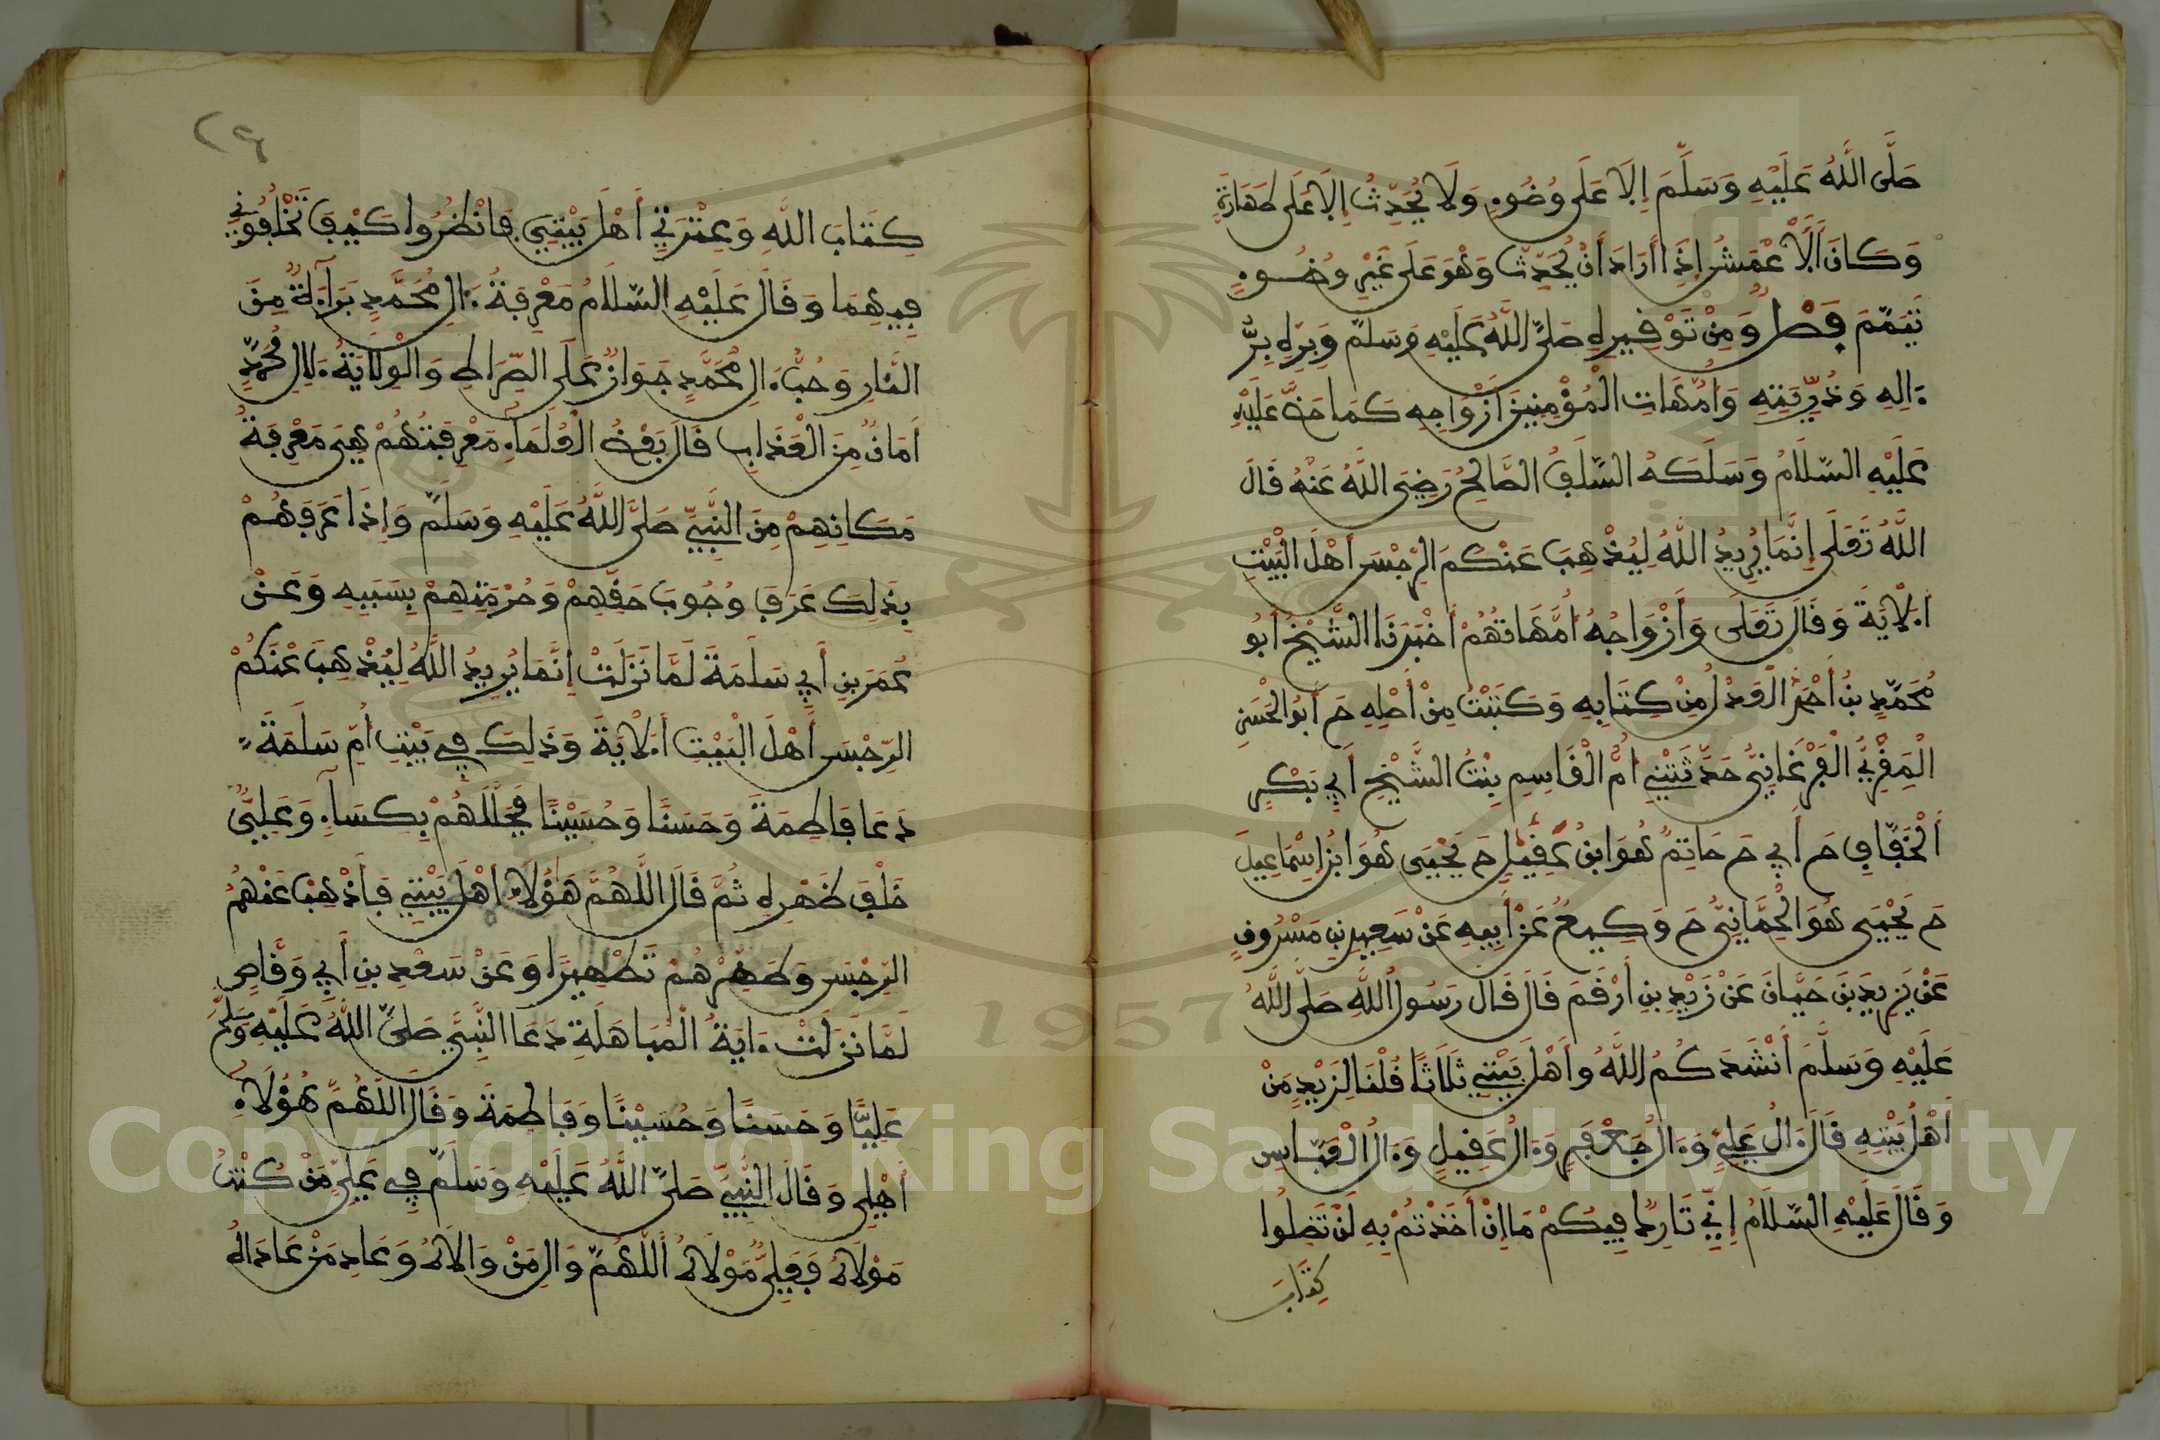 صَلَّى اللَّهُ عَلَيْهِ وَسَلَّمَ إِلَّا عَلَى وُضُوءٍ وَلَا يُحَدِّثُ إِلَّا عَلَى طَهَارَةٍ
وَكَانَ الْأَعْمَشُ إِذَا أَرَادَ أَنْ يُحَدِّثَ وَهْوَ عَلَى غَيْرِ وُضُوءٍ
تَيَمَّمَ فَصْلٌ وَمِنْ تَوْقِيرِهِ صَلَّى اللَّهُ عَلَيْهِ وَسَلَّمَ وَبِرِّهِ بِرُّ
ءَالِهِ وَذُرِّيَّتِهِ وَأُمَّهَاتِ الْمُؤْمِنِينَ أَزْوَاجِهِ كَمَا حَضَّ عَلَيْهِ
عَلَيْهِ السَّلَامُ وَسَلَكَهُ السَّلَفُ الصَّالِحُ رَضِيَ اللَّهُ عَنْهُ قَالَ
اللَّهُ تَعَلَى إِنَّمَا يُرِيدُ اللَّهُ لِيُذْهِبَ عَنْكُمُ الرِّجْسَ أَهْلَ الْبَيْتِ
اَلْآيَةَ وَقَالَ تَعَلَى وَأَزْوَاجُهُ أُمَّهَاتُهُمْ أَخْبَرَنَا الشَّيْخُ أَبُو
مُحَمَّدٍ بْنُ أَحْمَدَ الْعَدْلُ مِنْ كِتَابِهِ وَكَتَبْتُ مِنْ أَصْلِهِ حَ أَبُو الْحَسَنِ
الْمُقْرِئُ الْفَرْغَانِيُّ حَدَّثَتْنِي أُمُّ الْقَاسِمِ بِنْتُ الشَّيْخِ أَبِي بَكْرٍ
اَلْخَفَّافِ حَ أَبِي حَ حَاتِمٌ هُوَ ابْنُ عَقِيلٍ حَ يَحْيَى هُوَ ابْنُ إِسْمَاعِيلَ
حَ يَحْيَى هُوَ الْحِمَّانِيُّ حَ وَكِيعٌ عَنْ أَبِيهِ عَنْ سَعِيدِ بْنِ مَسْرُوقٍ
عَنْ يَزِيدَ بْنِ حَيَّانَ عَنْ زَيْدِ بْنِ أَرْقَمَ قَالَ قَالَ رَسُولُ اللَّهِ صَلَّى اللَّهُ
عَلَيْهِ وَسَلَّمَ أَنْشُدُكُمُ اللَّهَ وَأَهْلَ بَيْتِي ثَلَاثًا قُلْنَا لِزَيْدٍ مَنْ
أَهْلُ بَيْتِهِ قَالَ ءَالُ عَلِيٍّ وَءَالُ جَعْفَرٍ وَءَالُ عَقِيلٍ وَءَالُ الْعَبَّاسِ
وَقَالَ عَلَيْهِ السَّلَامُ إِنِّي تَارِكٌ فِيكُمْ مَا إِنْ أَخَذْتُمْ بِهِ لَنْ تَضِلُّوا
كِتَابَ
٢٩
كِتَابَ اللَّهِ وَعِتْرَتِي أَهْلَ بَيْتِي فَانْظُرُوا كَيْفَ تَخْلُفُونِي
فِيهِمَا وَقَالَ عَلَيْهِ السَّلَامُ مَعْرِفَةُ ءَالِ مُحَمَّدٍ بَرَاءَةٌ مِنَ
النَّارِ وَحُبُّ ءَالِ مُحَمَّدٍ جَوَازٌ عَلَى الصِّرَاطِ وَالْوِلَايَةُ لِآلِ مُحَمَّدٍ
أَمَانٌ مِنَ الْعَذَابِ قَالَ بَعْضُ الْعُلَمَاءِ مَعْرِفَتُهُمْ هِيَ مَعْرِفَةُ
مَكَانِهِمْ مِنَ النَّبِيِّ صَلَّى اللَّهُ عَلَيْهِ وَسَلَّمَ وَإِذَا عَرَفَهُمْ
بِذَلِكَ عَرَفَ وُجُوبَ حَقِّهِمْ وَحُرْمَتِهِمْ بِسَبَبِهِ وَعَنْ
عُمَرَ بْنِ أَبِي سَلَمَةَ لَمَّا نَزَلَتْ إِنَّمَا يُرِيدُ اللَّهُ لِيُذْهِبَ عَنْكُمُ
الرِّجْسَ أَهْلَ الْبَيْتِ اَلْآيَةَ وَذَلِكَ فِي بَيْتِ أُمِّ سَلَمَةَ
دَعَا فَاطِمَةَ وَحَسَنًا وَحُسَيْنًا فَجَلَّلَهُمْ بِكِسَاءٍ وَعَلِيٌّ
خَلْفَ ظَهْرِهِ ثُمَّ قَالَ اللَّهُمَّ هَؤُلَاءِ أَهْلُ بَيْتِي فَأَذْهِبْ عَنْهُمُ
الرِّجْسَ وَطَهِّرْهُمْ تَطْهِيرًا وَعَنْ سَعْدِ بْنِ أَبِي وَقَّاصٍ
لَمَّا نَزَلَتْ ءَايَةُ الْمُبَاهَلَةِ دَعَا النَّبِيُّ صَلَّى اللَّهُ عَلَيْهِ وَسَلَّمَ
عَلِيًّا وَحَسَنًا وَحُسَيْنًا وَفَاطِمَةَ وَقَالَ اللَّهُمَّ هَؤُلَاءِ
أَهْلِي وَقَالَ النَّبِيُّ صَلَّى اللَّهُ عَلَيْهِ وَسَلَّمَ فِي عَلِيٍّ مَنْ كُنْتُ
مَوْلَاهُ فَعَلِيٌّ مَوْلَاهُ أَللَّهُمَّ وَالِ مَنْ وَالَاهُ وَعَادِ مَنْ عَادَاهُ
1957
Copyright © King Saud University